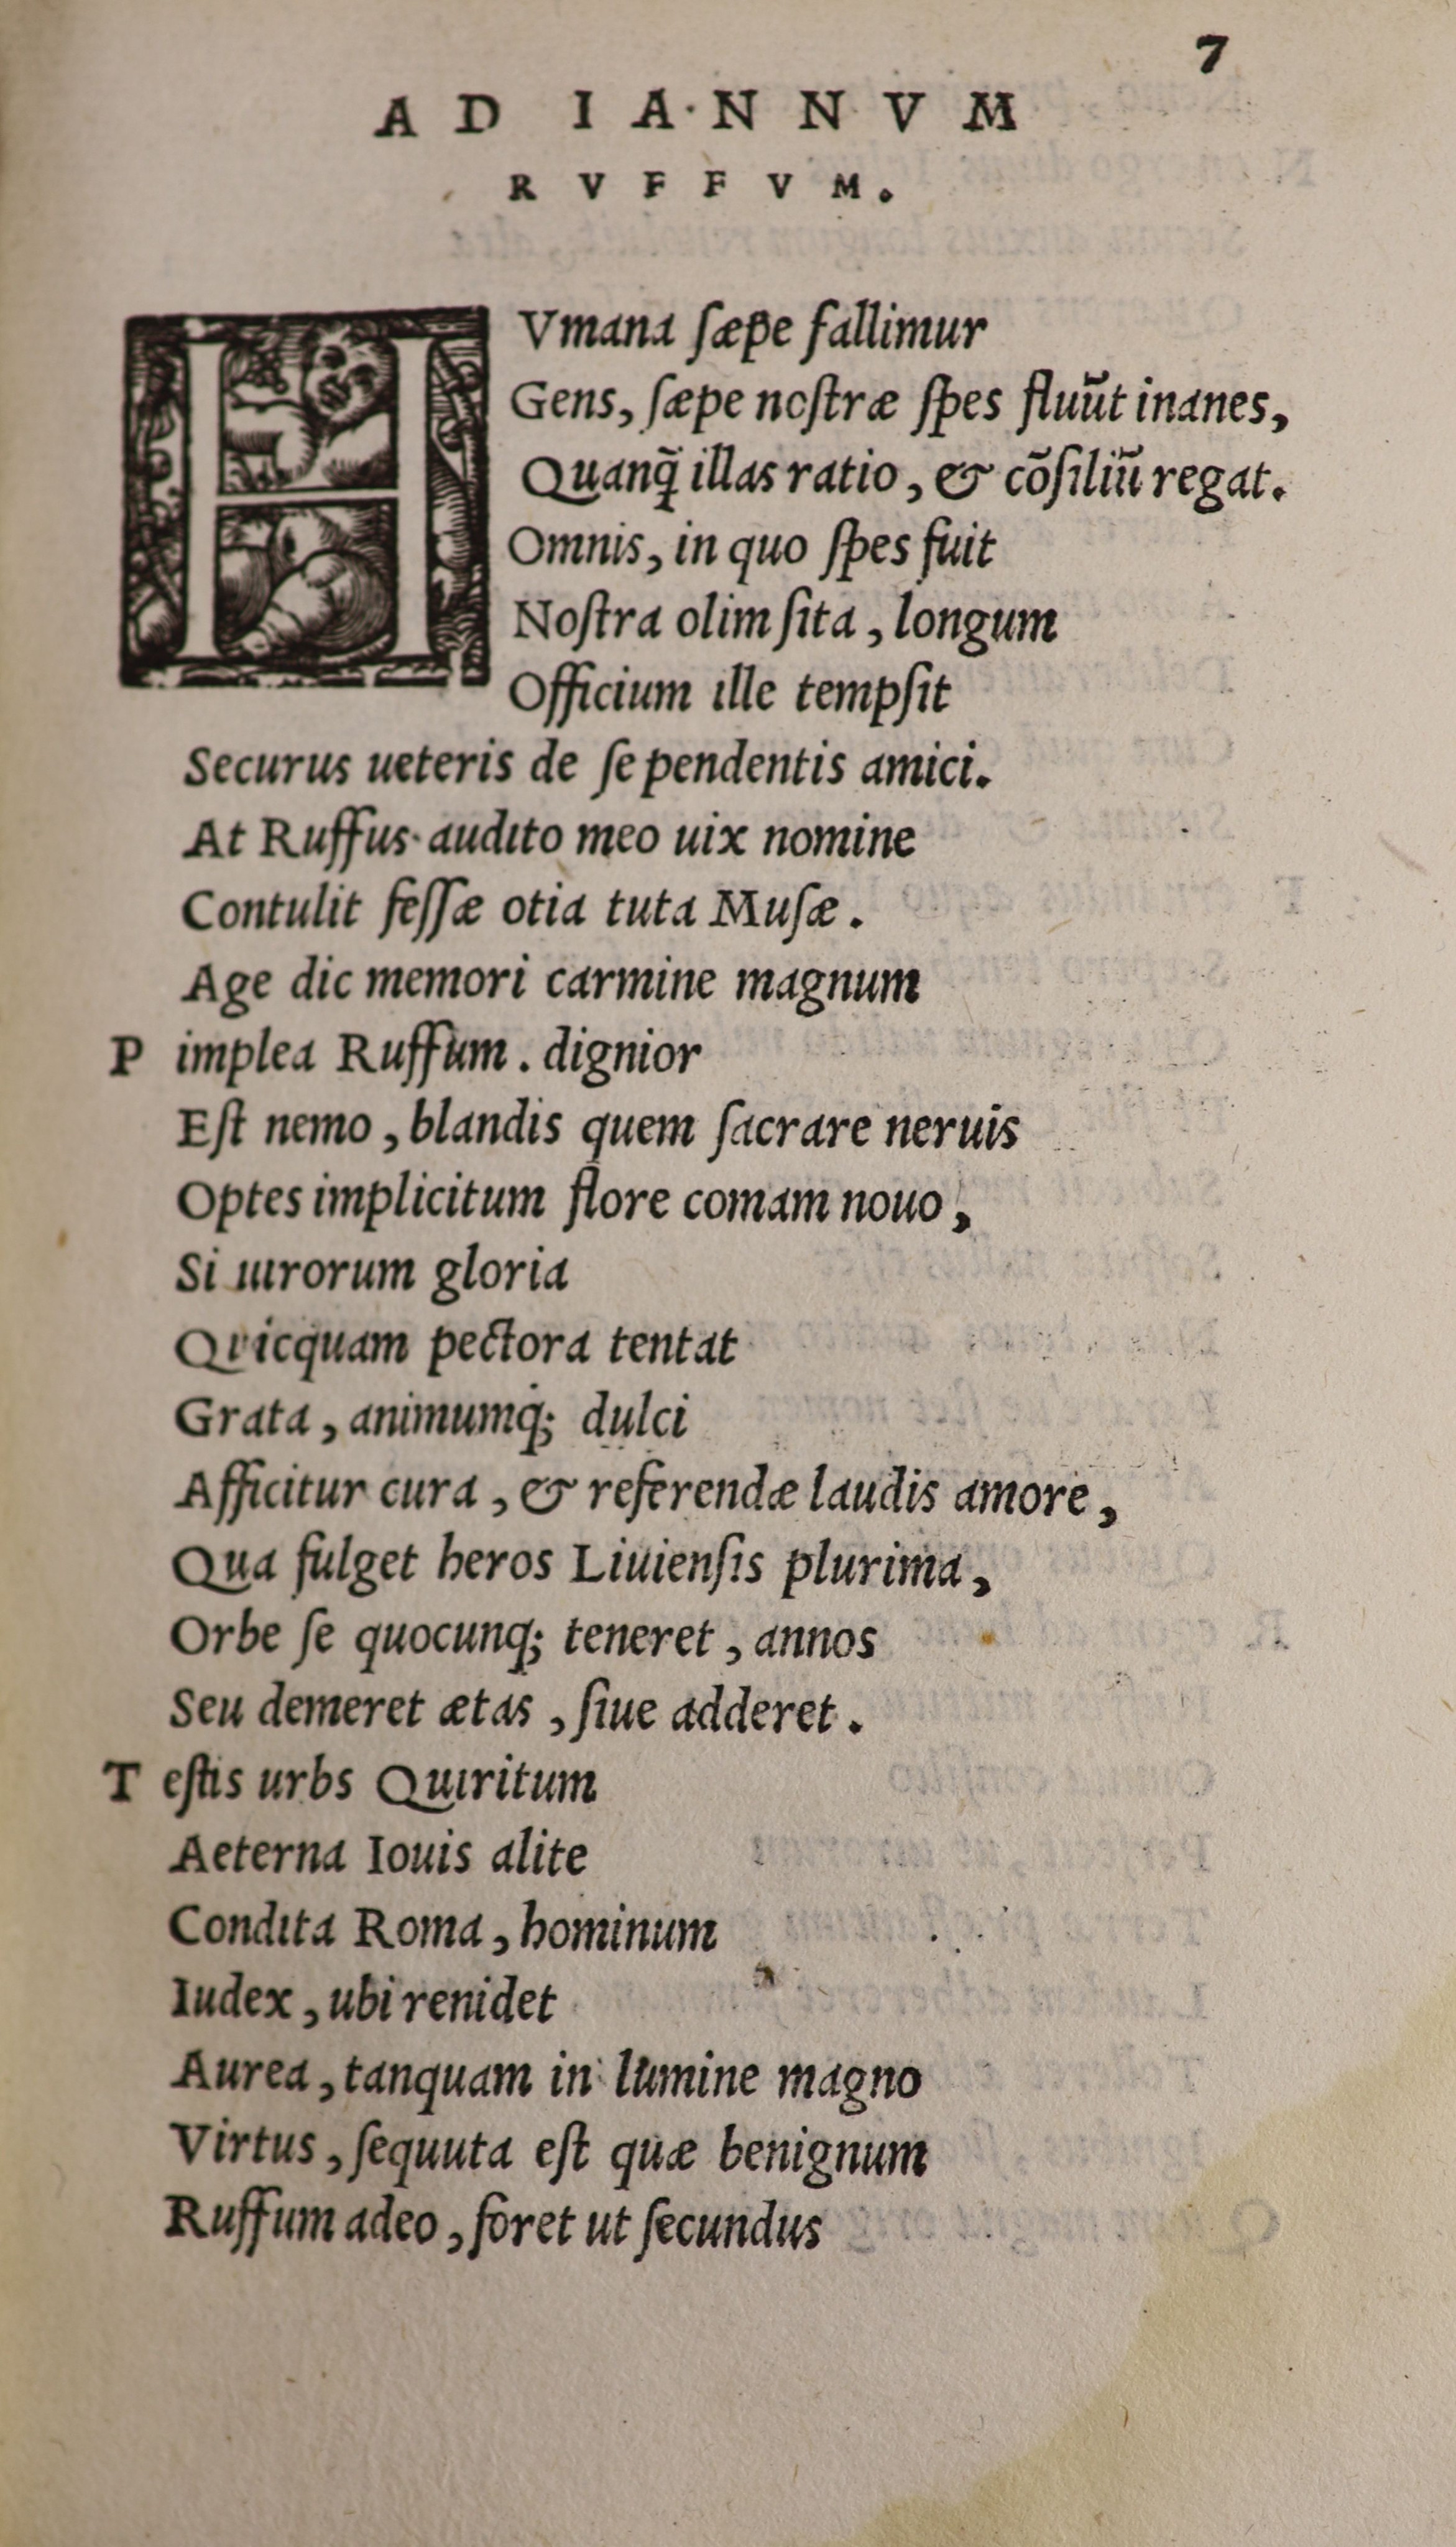 7
AD IANNVM
RVFFVM.
HVmana ſæpe fallimur
Gens, ſæpe noſtræ ſpes fluūt inanes,
Quanq̃ illas ratio, & cōſiliū regat.
Omnis, in quo ſpes fuit
Noſtra olim ſita, longum
Officium ille tempſit
Securus ueteris de ſe pendentis amici.
At Ruffus audito meo uix nomine
Contulit feſſæ otia tuta Muſæ.
Age dic memori carmine magnum
P implea Ruffum. dignior
Eſt nemo, blandis quem ſacrare neruis
Optes implicitum flore comam nouo,
Si uirorum gloria
Quicquam pectora tentat
Grata, animumq; dulci
Afficitur cura, & referendæ laudis amore,
Qua fulget heros Liuienſis plurima,
Orbe ſe quocunq; teneret, annos
Seu demeret ætas, ſiue adderet.
T eſtis urbs Quiritum
Aeterna Iouis alite
Condita Roma, hominum
Iudex, ubi renidet
Aurea, tanquam in lumine magno
Virtus, ſequuta eſt quæ benignum
Ruffum adeo, foret ut ſecundus